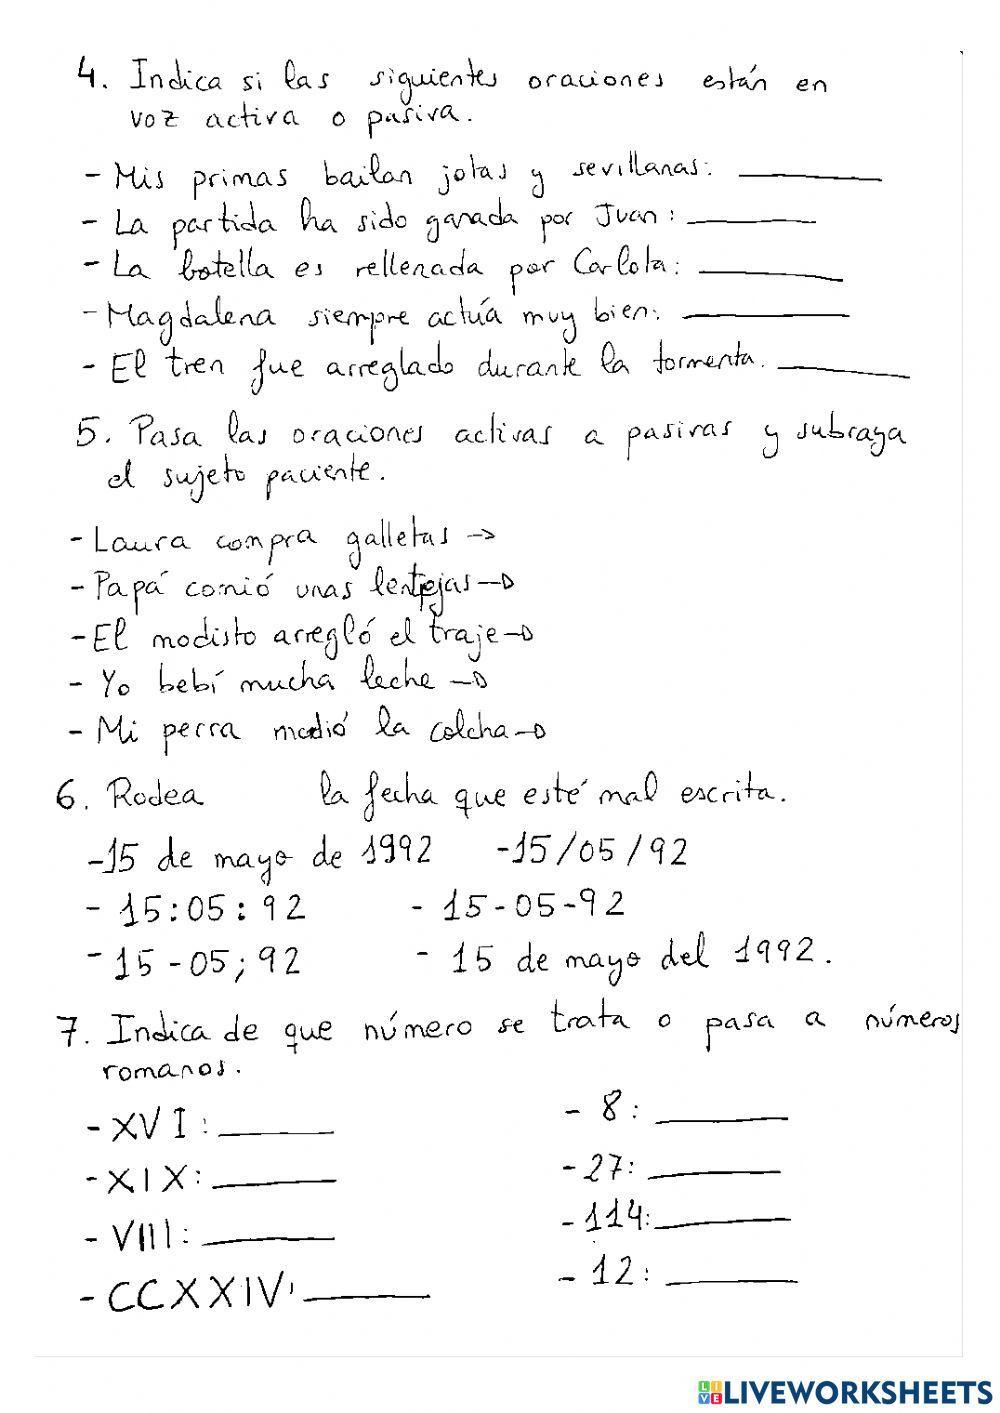 4. Indica si las siguientes oraciones están en
voz activa o pasiva.
- Mis primas bailan jotas y sevillanas: ________
- La partida ha sido ganada por Juan: ________
- La botella es rellenada por Carlota: ________
- Magdalena siempre actúa muy bien: ________
- El tren fue arreglado durante la tormenta. ________
5. Pasa las oraciones activas a pasivas y subraya
el sujeto paciente.
- Laura compra galletas →
- Papá comió unas lentejas →
- El modisto arregló el traje →
- Yo bebí mucha leche →
- Mi perra mordió la colcha →
6. Rodea la fecha que esté mal escrita.
- 15 de mayo de 1992 - 15/05/92
- 15:05:92 - 15-05-92
- 15-05;92 - 15 de mayo del 1992.
7. Indica de que número se trata o pasa a números
romanos.
- XVI: ________ - 8: ________
- XIX: ________ - 27: ________
- VIII: ________ - 114: ________
- CCXXIV: ________ - 12: ________
LIVE LIVEWORKSHEETS